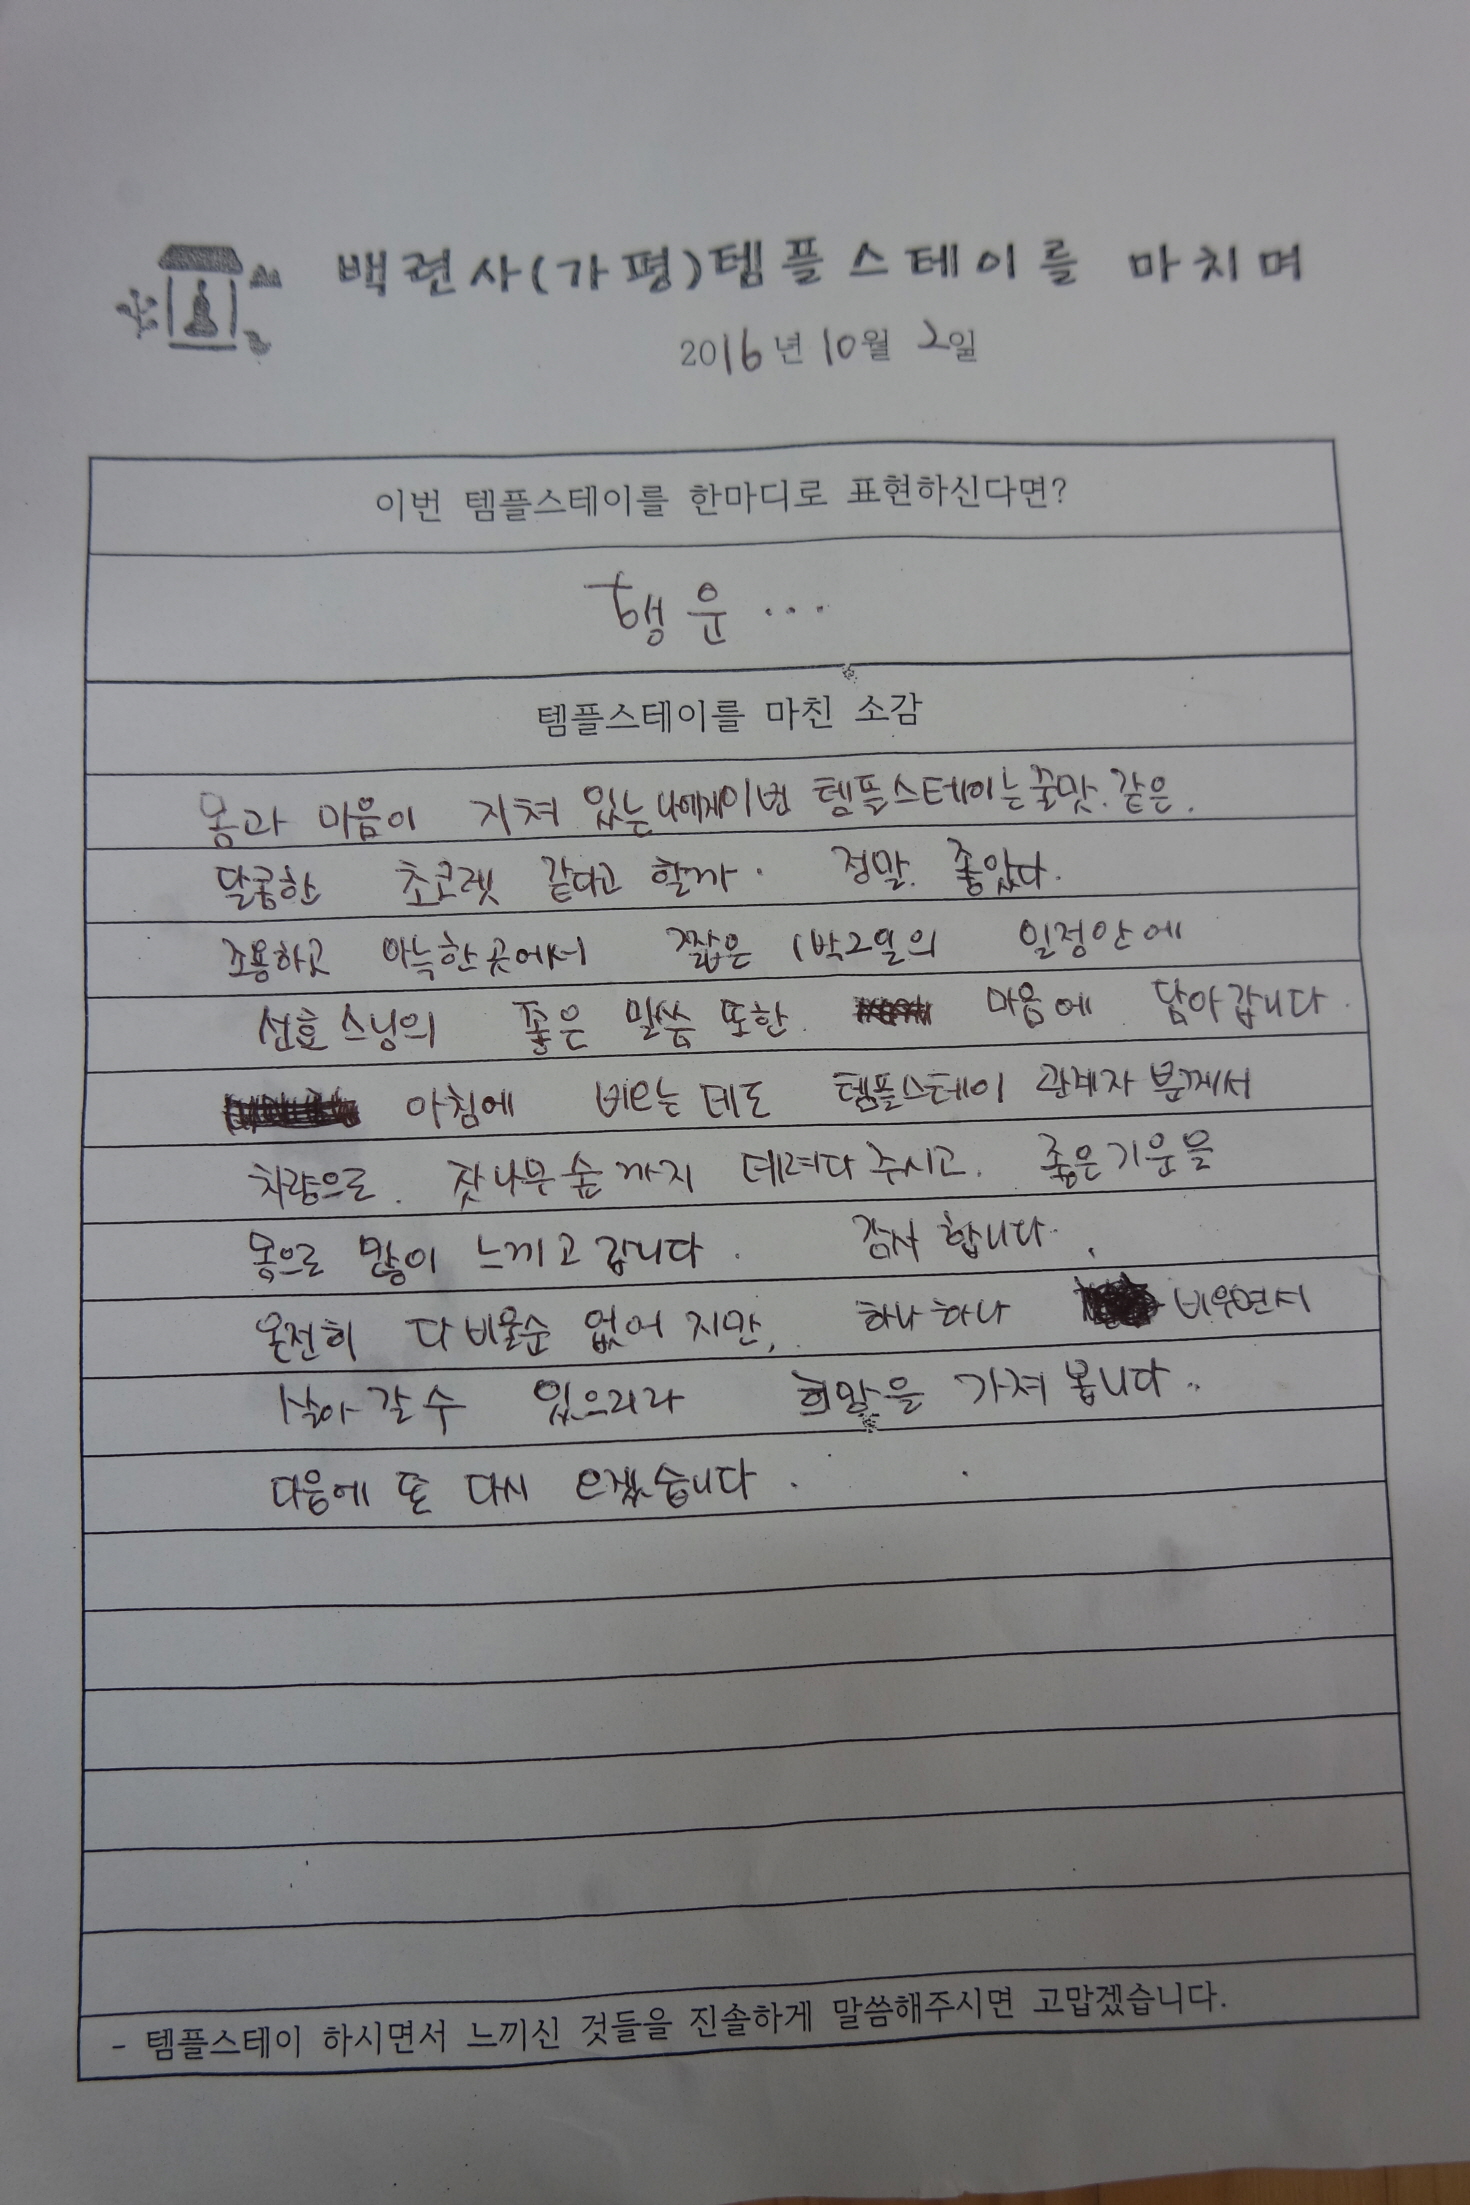 백련사(가평)템플스테이를 마치며
2016년 10월 2일
이번 템플스테이를 한마디로 표현하신다면?
행운...
템플스테이를 마친 소감
몸과 마음이 지쳐 있는 나에게 이번 템플스테이는 꿀맛. 같은.
달콤한 초코렛 같다고 할까. 정말. 좋았다.
조용하고 아늑한 곳에서 짧은 1박2일의 일정안에
선효 스님의 좋은 말씀 또한 마음에 담아갑니다.
아침에 비오는데도 템플스테이 관계자 분께서
차량으로. 잣나무숲까지 데려다 주시고. 좋은기운을
몸으로 많이 느끼고 갑니다. 감사합니다.
온전히 다 비울순 없어지만, 하나하나 비우면서
살아갈 수 있으리라 희망을 가져 봅니다..
다음에 또 다시 오겠습니다.
- 템플스테이 하시면서 느끼신 것들을 진솔하게 말씀해주시면 고맙겠습니다.